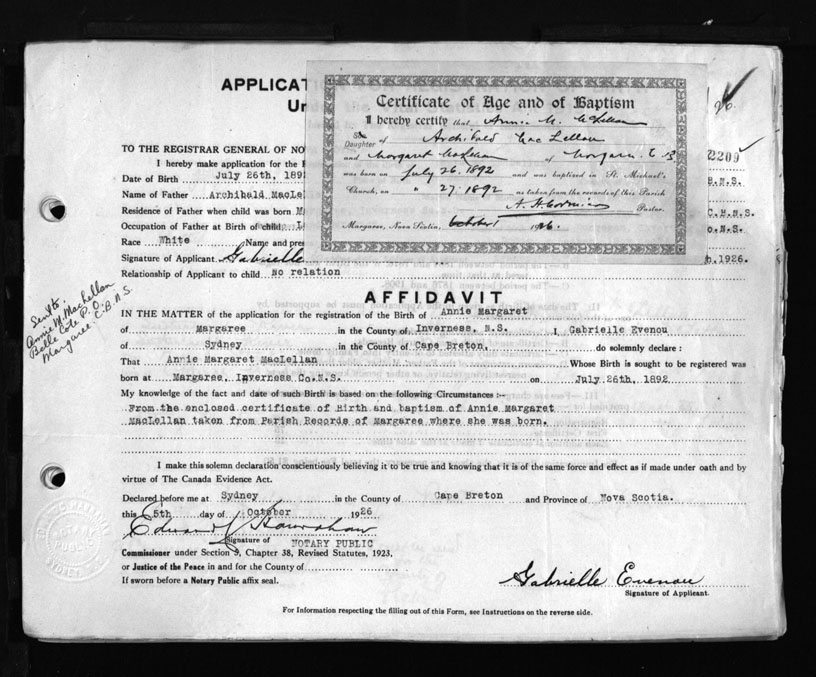 APPLICAT
Un
TO THE REGISTRAR GENERAL OF NO
I hereby make application for the
Date of Birth July 26th, 1892
Name of Father Archibald MacLe
Residence of Father when child was born M
Occupation of Father at Birth of child
Race White Name and pre
Signature of Applicant Gabrielle
Relationship of Applicant to child No relation
Certificate of Age and of Baptism
I hereby certify that Annie M. McLellan
Daughter of Archibald MacLellan
and Margaret McLellan of Margaree C B
was born on July 26, 1892 and was baptized in St. Michael's
Church, on " 27. 1892 as taken from the records of this Parish
Pastor.
Margaree, Nova Scotia, October 1926.
2209
B.N.S.
C.B.N.S.
o.N.S.
1926.
Sent to:
Annie M. MacLellan
Belle Cote P.O.
Margaree C.B. N.S.
AFFIDAVIT
IN THE MATTER of the application for the registration of the Birth of Annie Margaret
of Margaree in the County of Inverness, N.S. I Gabrielle Evenou
of Sydney in the County of Cape Breton. do solemnly declare :
That Annie Margaret MacLellan Whose Birth is sought to be registered was
born at Margaree, Inverness Co.N.S. on July 26th, 1892
My knowledge of the fact and date of such Birth is based on the following Circumstances :-
From the enclosed certificate of Birth and baptism of Annie Margaret
MacLellan taken from Parish Records of Margaree where she was born.
I make this solemn declaration conscientiously believing it to be true and knowing that it is of the same force and effect as if made under oath and by
virtue of The Canada Evidence Act.
Declared before me at Sydney in the County of Cape Breton and Province of Nova Scotia.
this 5th day of October 1926
Signature of NOTARY PUBLIC
Commissioner under Section 9, Chapter 38, Revised Statutes, 1923,
or Justice of the Peace in and for the County of
If sworn before a Notary Public affix seal.
Gabrielle Evenou
Signature of Applicant.
For Information respecting the filling out of this Form, see Instructions on the reverse side.